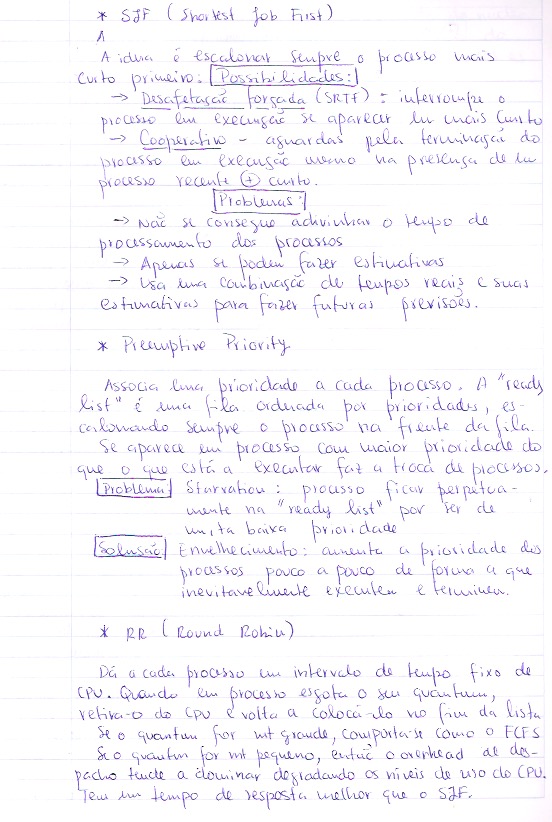 * SJF (Shortest Job First)
A
A ideia é escalonar sempre o processo mais
curto primeiro: Possibilidades:
→ Desafetação forçada (SRTF): interrompe o
processo em execução se aparecer um mais curto
→ Cooperativo - aguardas pela terminação do
processo em execução mesmo na presença de um
processo recente + curto.
Problemas:
→ Não se consegue adivinhar o tempo de
processamento dos processos
→ Apenas se podem fazer estimativas
→ Usa uma combinação de tempos reais e suas
estimativas para fazer futuras previsões.
* Preemptive Priority
Associa uma prioridade a cada processo. A "ready
list" é uma fila ordenada por prioridades, es-
calonando sempre o processo na frente da fila.
Se aparece um processo com maior prioridade do
que o que está a executar faz a troca de processos.
Problema Starvation: processo ficar perpetua-
mente na "ready list" por ser de
muita baixa prioridade
Solusão Envelhecimento: aumenta a prioridade dos
processos pouco a pouco de forma a que
inevitavelmente executem e terminem.
* RR (Round Robin)
Dá a cada processo um intervalo de tempo fixo de
CPU. Quando um processo esgota o seu quantum,
retira-o do CPU e volta a colocá-lo no fim da lista
Se o quantum for mt grande, comporta-se como o FCFS
Se o quantum for mt pequeno, então o overhead de des-
pacho tende a dominar degradando os níveis de uso do CPU.
Tem um tempo de resposta melhor que o SJF.